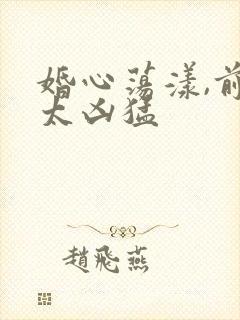 婚心荡漾,前
太凶猛
趙飛燕